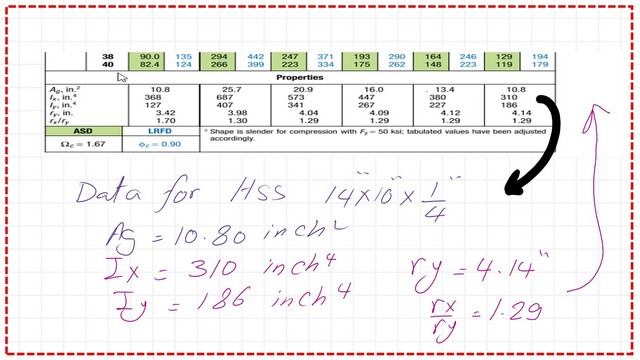 38 90.0 135 294 442 247 371 193 290 164 246 129 194
40 82.4 124 266 399 223 334 175 262 148 223 119 179
Properties
Ag, in.² 10.8 25.7 20.9 16.0 13.4 10.8
Ix, in.⁴ 368 687 573 447 380 310
Iy, in.⁴ 127 407 341 267 227 186
ry, in. 3.42 3.98 4.04 4.09 4.12 4.14
rx/ry 1.70 1.30 1.29 1.29 1.29 1.29
ASD LRFD c Shape is slender for compression with Fy = 50 ksi; tabulated values have been adjusted
accordingly.
Ωc = 1.67 ϕc = 0.90
Data for HSS 14"x10"x1/4"
Ag = 10.80 inch²
Ix = 310 inch⁴ ry = 4.14"
Iy = 186 inch⁴ rx/ry = 1.29